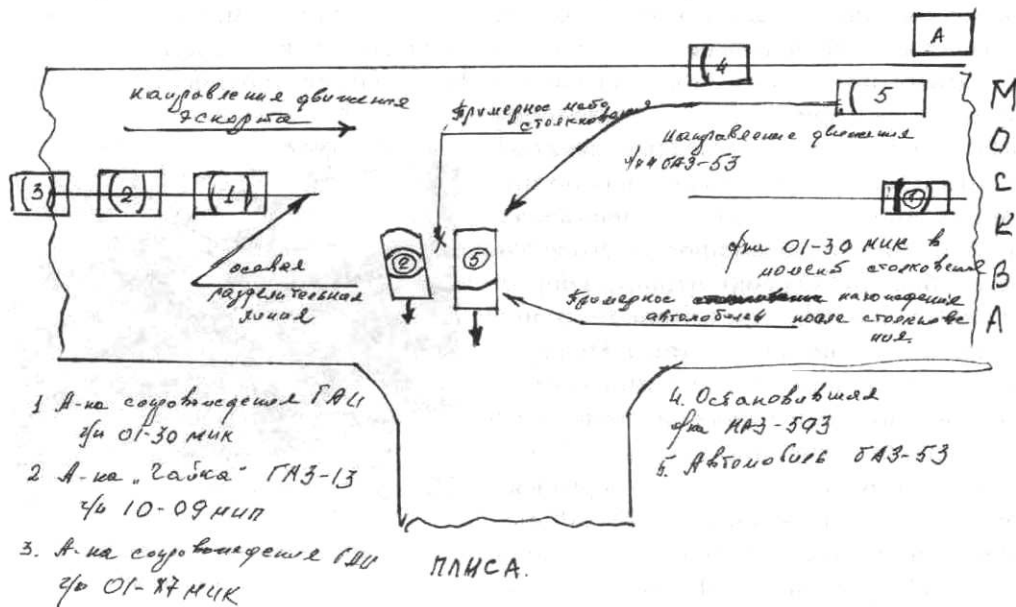 А
4
направления движения
эскорта
Примерное место
столкновения
5
Направление движения
а/м ГАЗ-53
МОСКВА
(3) (2) (1)
1
2
5
осевая
разделительная
линия
а/м 01-30 МИК в
момент столкновения
Примерное нахождения
автомобилей после столкнове
ния.
1 А-на сопровождения ГАИ
г/н 01-30 МИК
2 А-на „Чайка" ГАЗ-13
г/н 10-09 МИП
3. А-на сопровождения ГАИ
г/н 01-87 МИК
4. Остановившая
а/м МАЗ-503
5. Автомобиль ГАЗ-53
ПЛИСА.